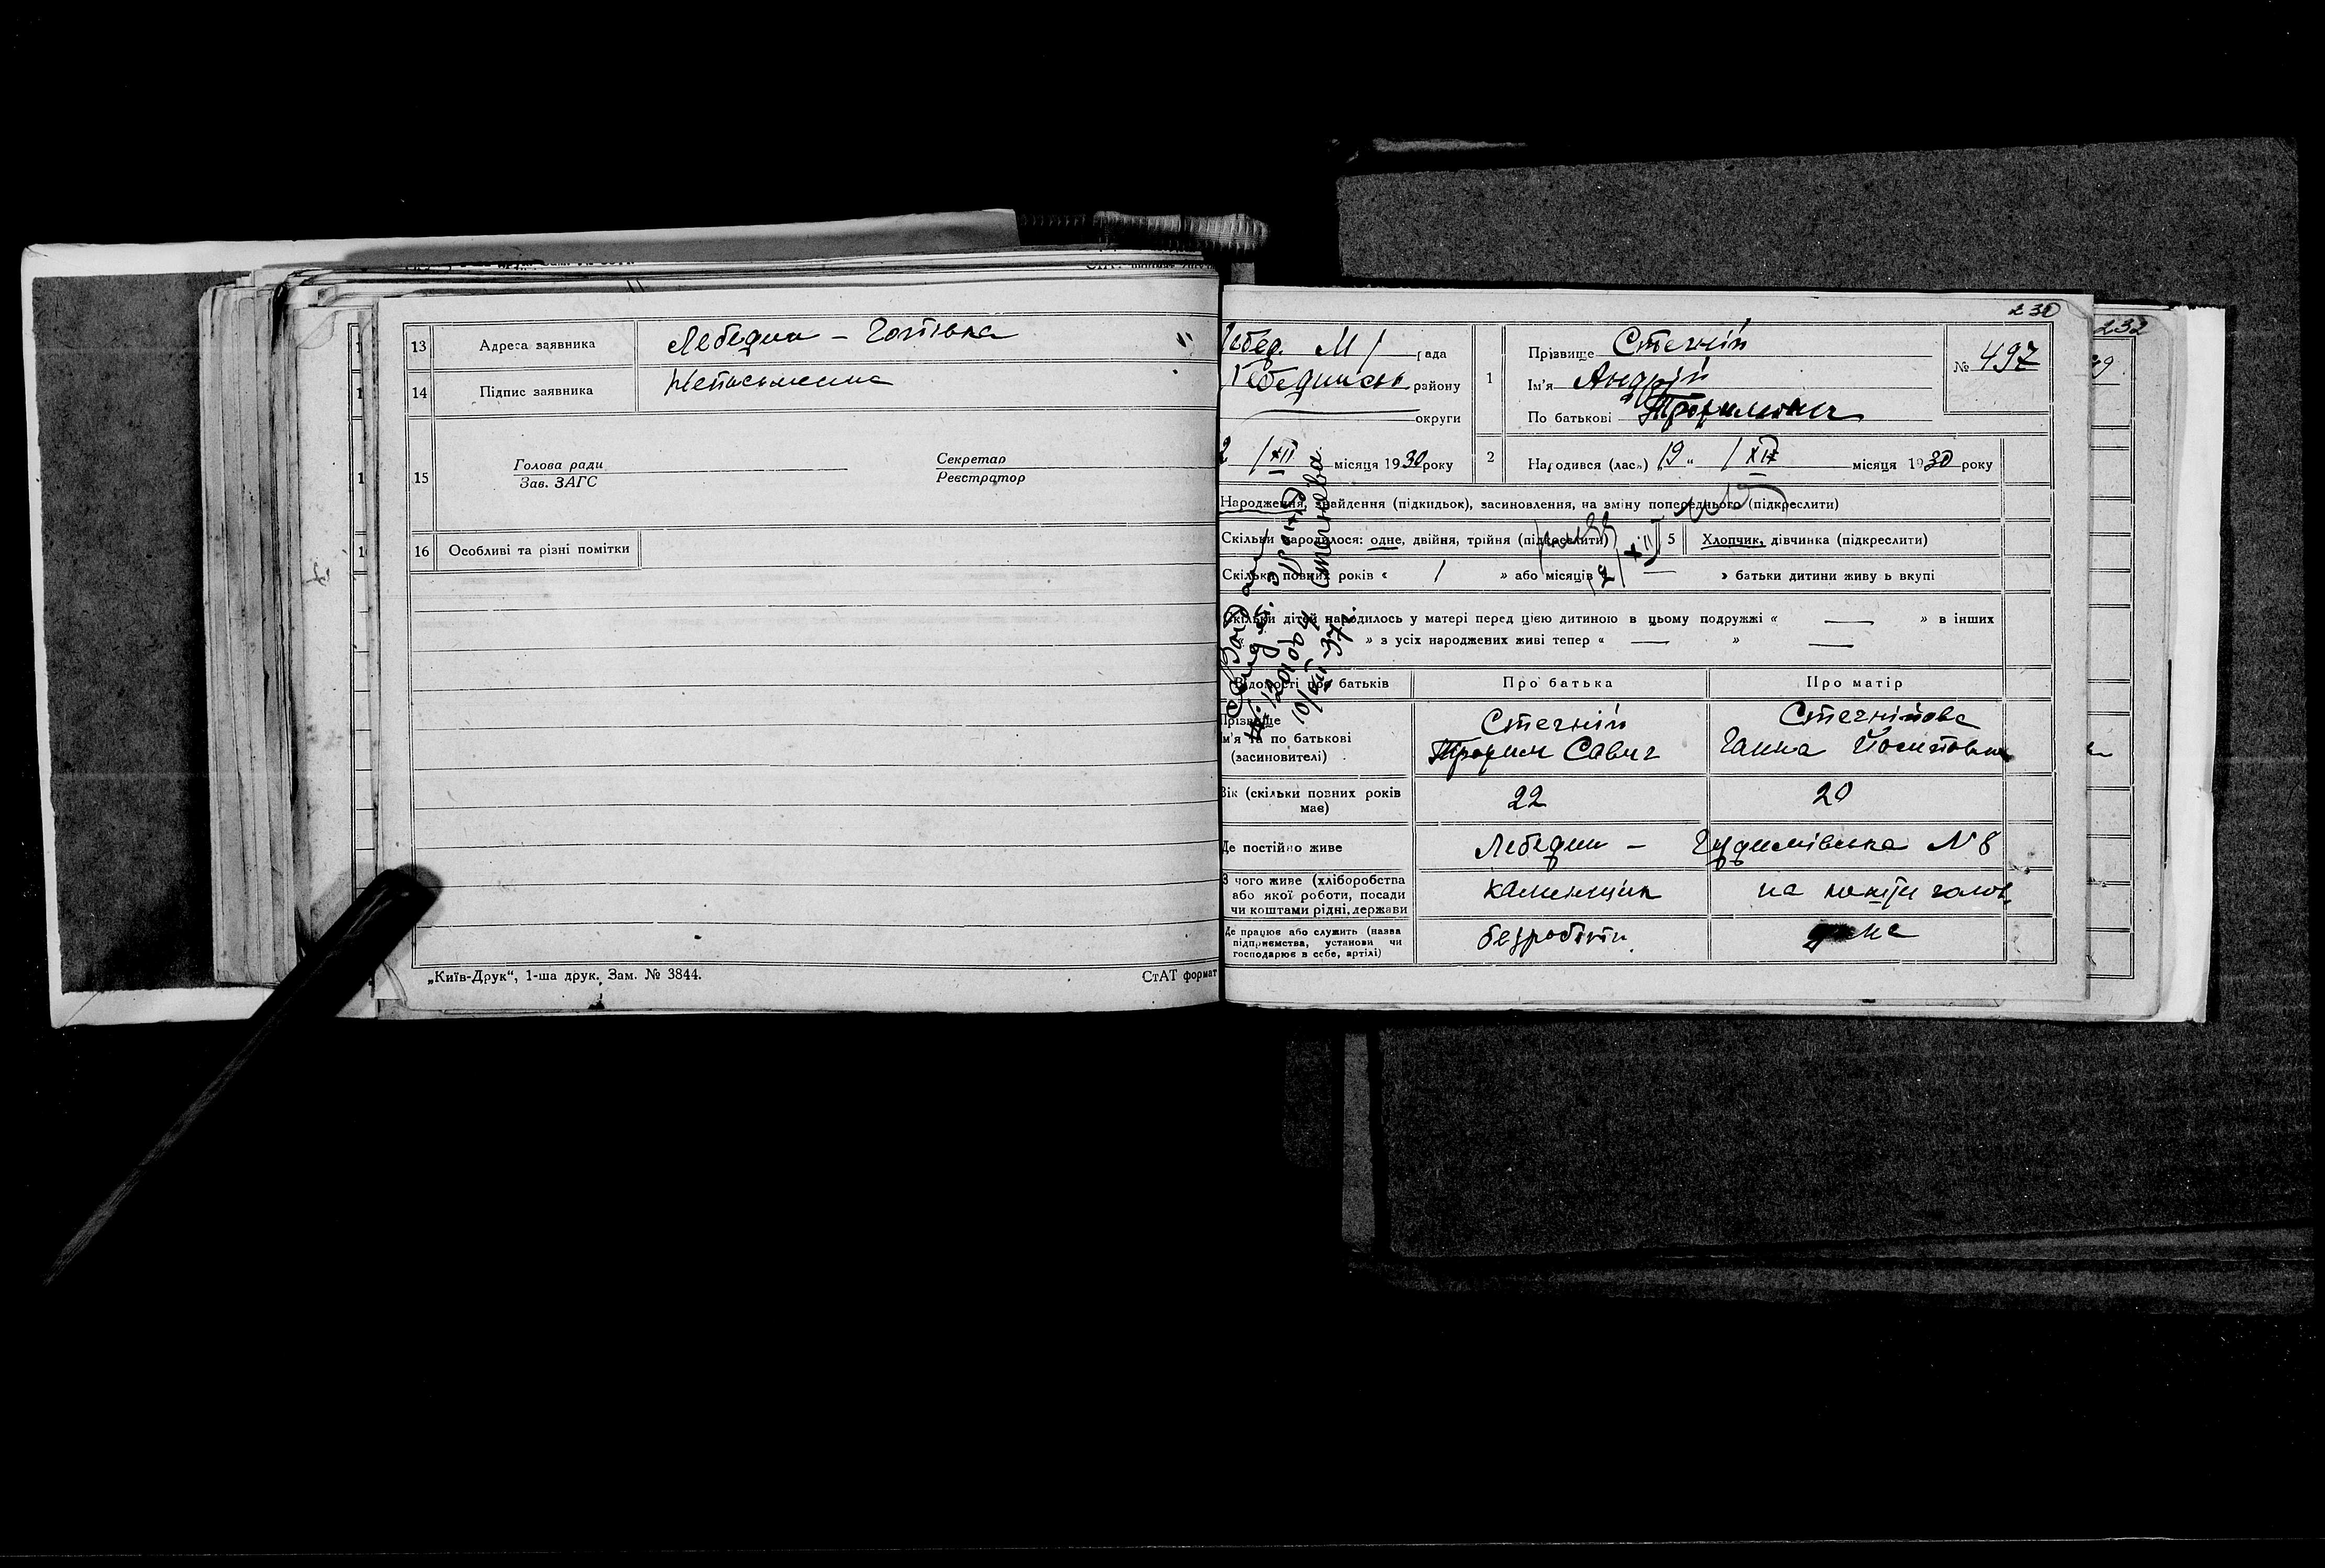 13 Адреса заявника Лебедин – Готівка
14 Підпис заявника Неписьменна
15 Голова ради Секретар
Зав. ЗАГС Реєстратор
16 Особливі та різні помітки
„Київ-Друк“, 1-ша друк. Зам. № 3844. СтАТ формат
231
232
Лебед. М / рада
Лебединськ району
округи
2 / XII місяця 1930 року
1 Прізвище Стегній
Ім'я Андрій
По батькові Трофимович
№ 497
2 Народився (лась) „19“ / XII місяця 1930 року
Народження, знайдення (підкидьок), засиновлення, на зміну попереднього (підкреслити)
Скільки народилося: одне, двійня, трійня (підкреслити) 5 Хлопчик, дівчинка (підкреслити)
Скільки повних років « 1 » або місяців « — » батьки дитини живуть вкупі
Скільки дітей народилось у матері перед цією дитиною в цьому подружжі « — » в інших
« » з усіх народжених живі тепер « — » —
Відомості про батьків Про батька Про матір
Прізвище Стегній Стегнійова
ім'я та по батькові Трофим Савич Ганна Йосиповна
(засиновителі)
Вік (скільки повних років має) 22 20
Де постійно живе Лебедин – Гудимівська № 8
З чого живе (хліборобства
або якої роботи, посади каменщик на кошти чолов.
чи коштами рідні, держави
Де працює або служить (назва
підприємства, установи чи безробітн.
господарює в себе, артілі)